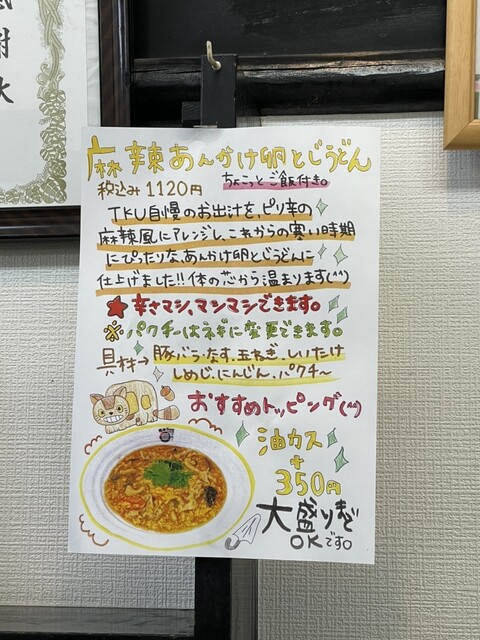 感謝状
麻辣あんかけ卵とじうどん
税込み1120円
ちょこっとご飯付き。
TKU自慢のお出汁を、ピリ辛の
麻辣風にアレンジし、これからの寒い時期
にぴったりな、あんかけ卵とじうどんに
仕上げました!!体の芯から温まります(^^)
★辛さマシ、マシマシできます。
※パクチーはネギに変更できます。
具材→豚バラ・なす、玉ねぎ、しいたけ
しめじ、にんじん、パクチ〜
おすすめトッピング(^^)
油カス
+
350円
大盛りまで
OKです。